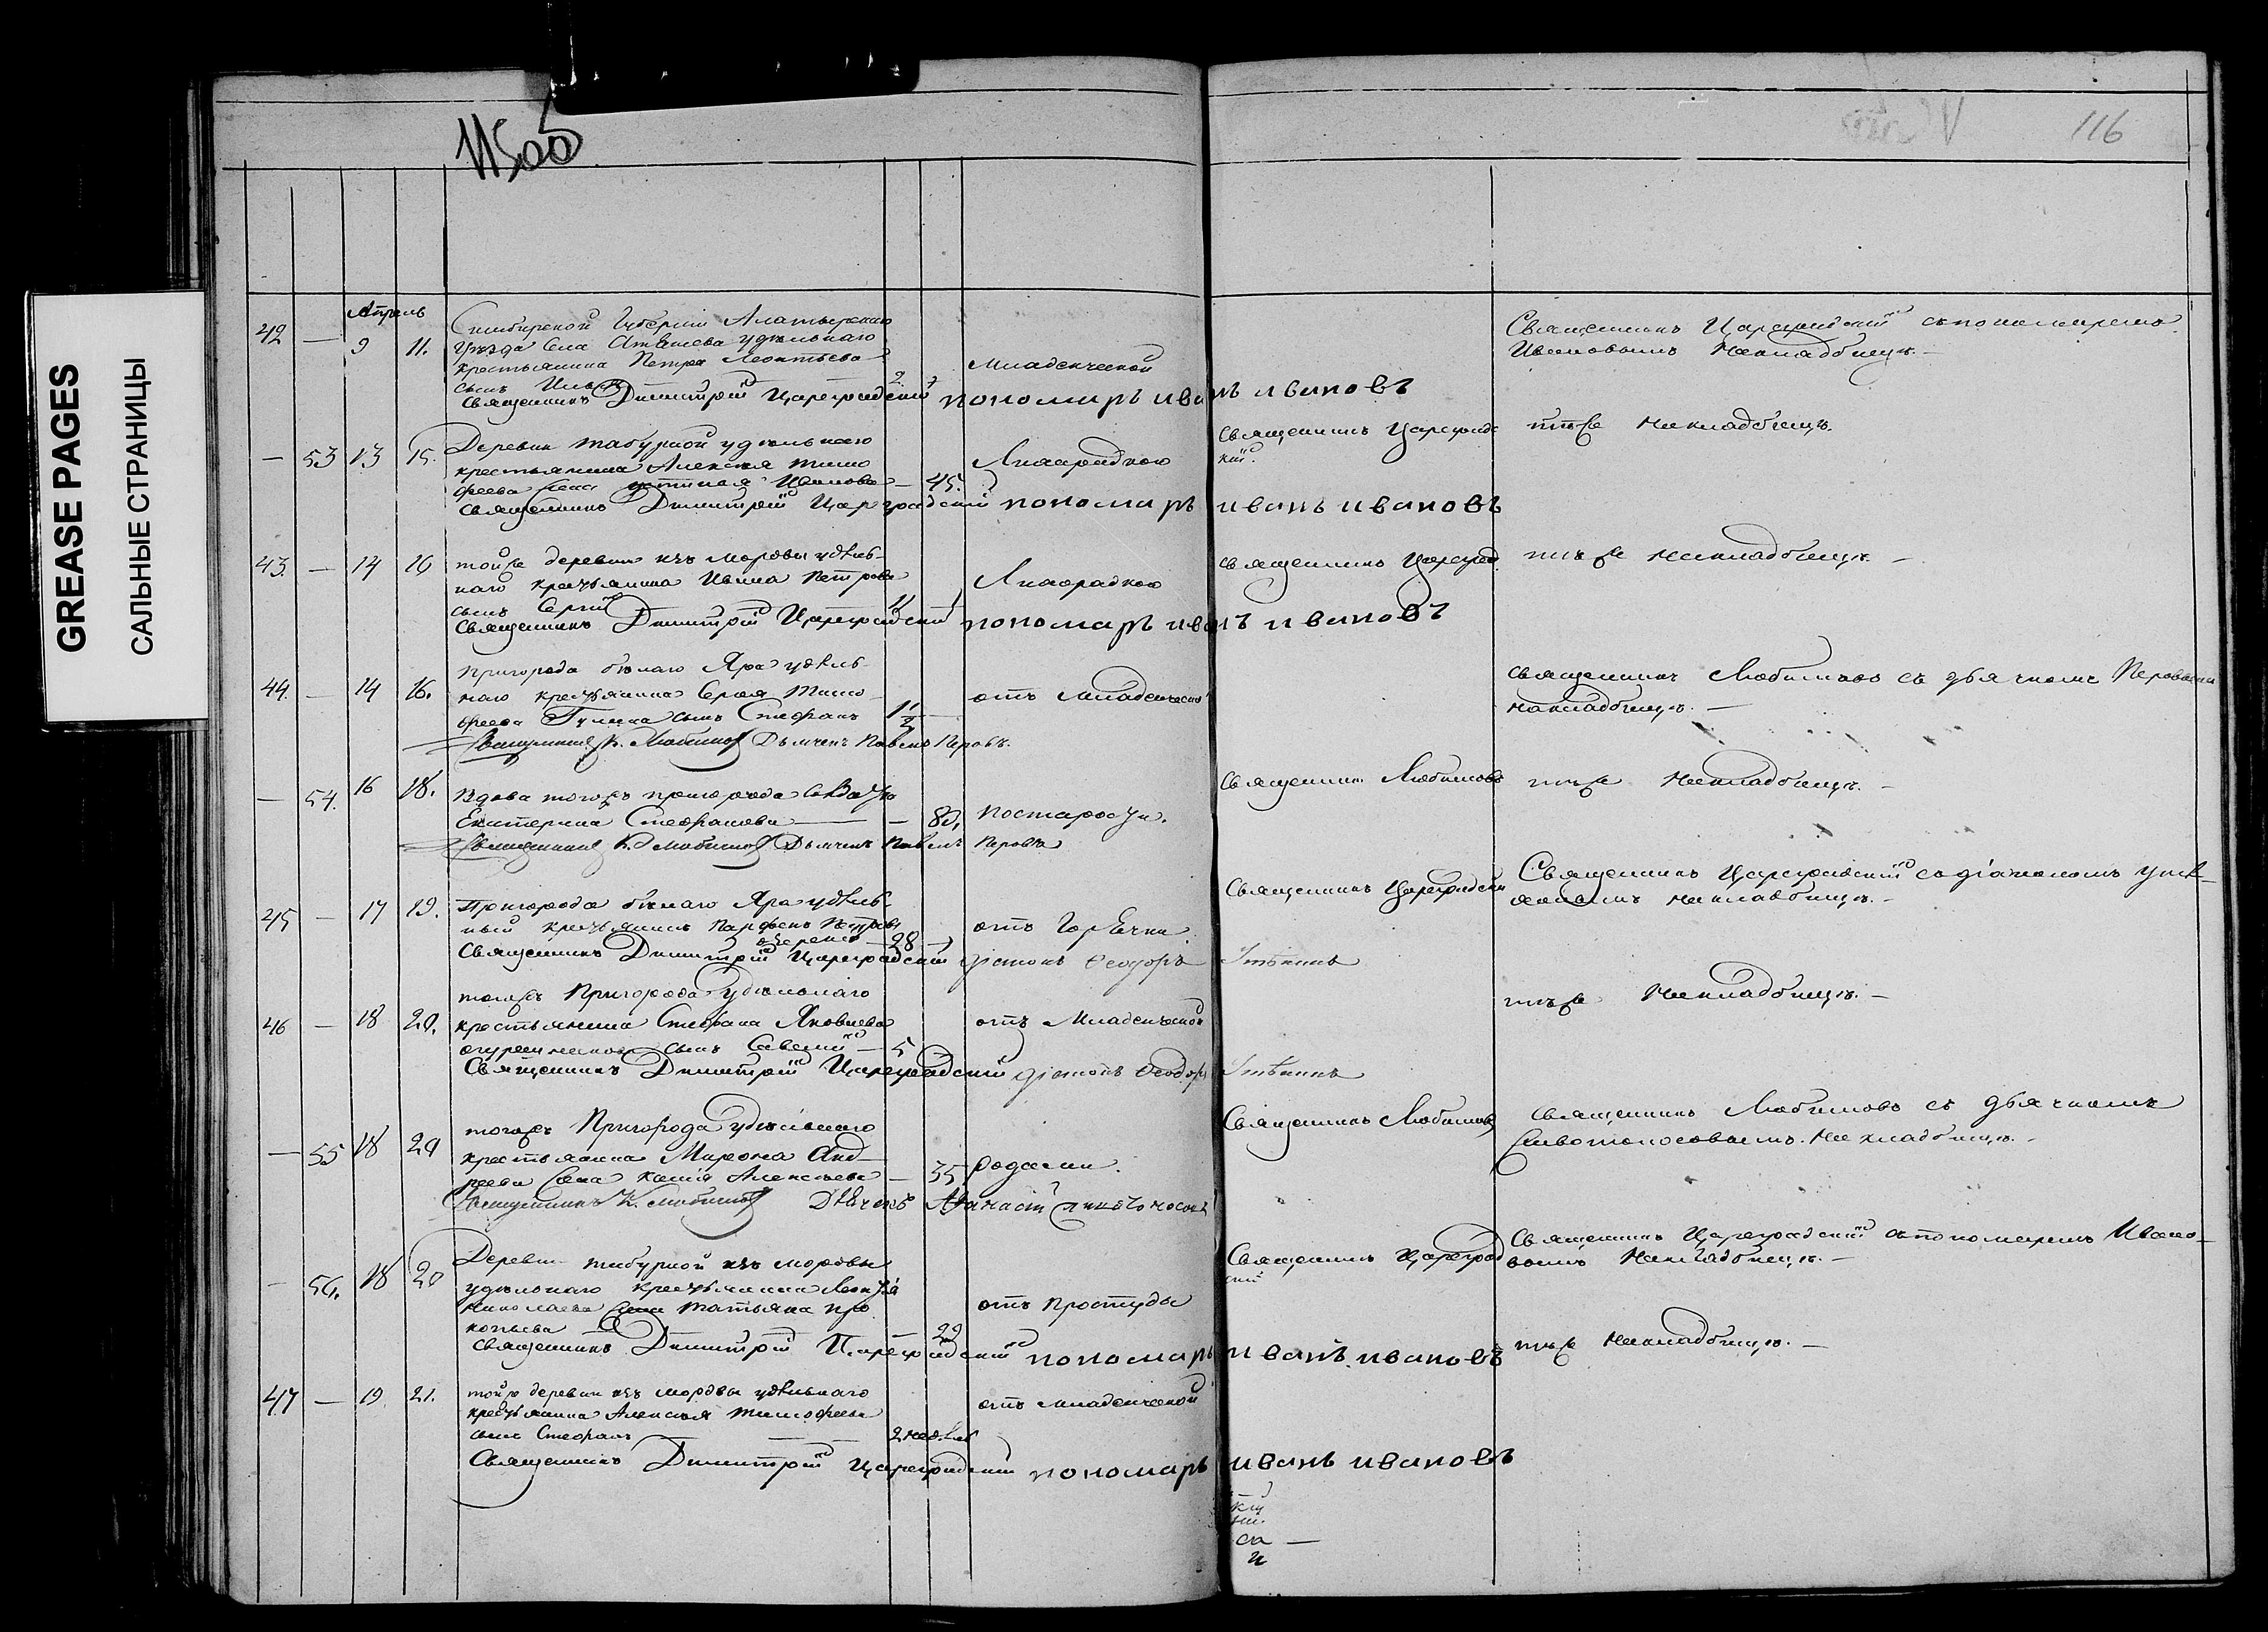 GREASE PAGES
САЛЬНЫЕ СТРАНИЦЫ
11500
116
Апрель
42 — 9 11. Симбирской Губерніи Алатырскаго
уѣзда Села удѣльнаго
крестьянина Петра Леонтьева
сынъ 2. Младенческой
Священникъ Царегродскій съ пономаремъ
Ивановымъ На кладбищѣ. —
Священникъ Димитрій Цареградскій пономарь иванъ ивановъ
— 53 13 15. Деревни Табурной удѣльнаго
крестьянина Алексѣя Тимо
феева жена Устинья Иванова — 45. Лихорадкою
Священникъ Цареградс
кій.
тѣ же На кладбищѣ.
Священникъ Димитрій Цареградскій пономарь иванъ ивановъ
43. — 14 16 той же деревни изъ мордвы удѣль-
наго крестьянина Ивана Петрова
сынъ Сергій 11 Лихорадкою
священникъ Цареград.
тѣ же На кладбищѣ. —
Священникъ Димитрій Цареградскій пономарь иванъ ивановъ
44. — 14 16. Пригорода бѣлаго Яра удѣль-
наго крестьянина Сергѣя Тимо
феева сынъ Стефанъ 1 1/2 — отъ Младенческой
священникъ Любимовъ съ дьячкомъ Перовымъ
на кладбищѣ. —
Священникъ К. Любимовъ Дьячекъ Павелъ Перовъ.
— 54. 16 18. Вдова тогожъ пригорода
Екатерина Стефанова — — 80. по старости.
Священникъ Любимовъ
тѣ же На кладбищѣ. —
Священникъ К. Любимовъ Дьячекъ Павелъ Перовъ
45 — 17 19. Пригорода бѣлаго Яра удѣль-
ный крестьянинъ Парфенъ Петровъ
28 — отъ Горячки.
Священникъ Цареградскій
Священникъ Цареградскій съ діакономъ
На кладбищѣ. —
Священникъ Димитрій Цареградскій діаконъ Ѳеодоръ
46 — 18 20. тогожъ Пригорода удѣльнаго
крестьянина Стефана Яковлева
сынъ Савелій — 5 отъ Младенческой
тѣ же На кладбищѣ. —
Священникъ Димитрій Цареградскій діаконъ Ѳеодоръ
— 55 18 20 тогожъ Пригорода удѣльнаго
крестьянина Мирона Анд
реева жена Алексѣева — 35 родами.
Священникъ Любимовъ
священникъ Любимовъ съ дьячкомъ
На кладбищѣ. —
Священникъ К. Любимовъ Дьячекъ
— 56. 18 20 Деревни Табурной изъ мордвы
удѣльнаго крестьянина
Николаева жена Татьяна Про
копьева — 29 отъ простуды
Священникъ Цареград
скій
Священникъ Цареградскій съ пономаремъ Ивано-
вымъ На кладбищѣ. —
Священникъ Димитрій Цареградскій пономарь иванъ ивановъ
47 — 19 21. той же деревни изъ мордвы удѣльнаго
крестьянина Алексѣя Тимофеева
сынъ Стефанъ — 2 недѣли отъ младенческой
тѣ же На кладбищѣ. —
Священникъ Димитрій Цареградскій пономарь иванъ ивановъ